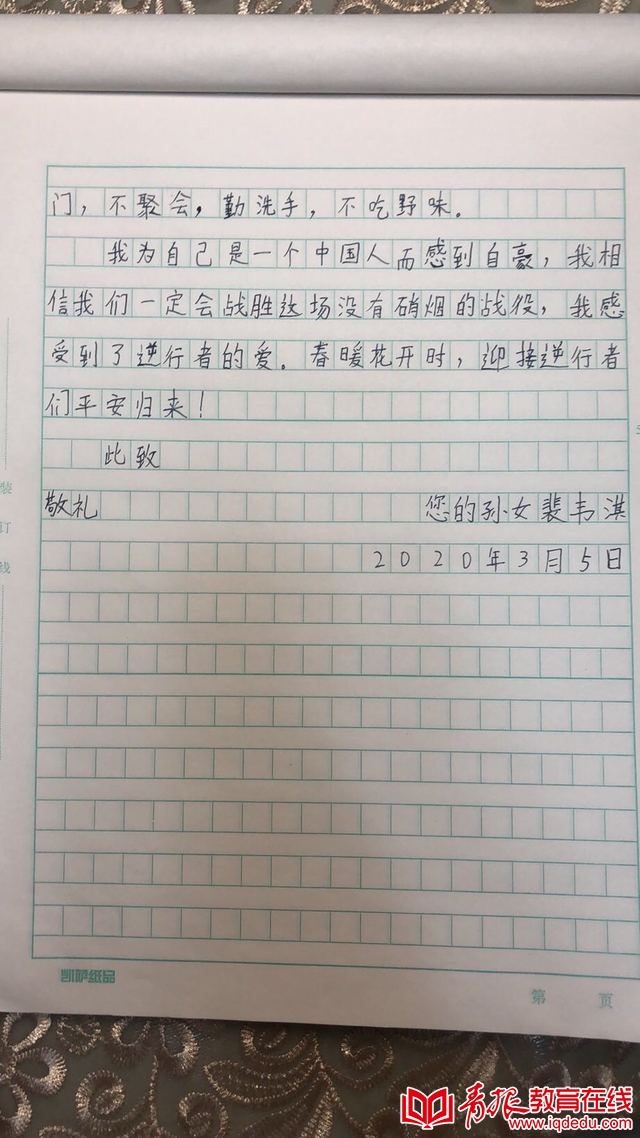 门，不聚会，勤洗手，不吃野味。
我为自己是一个中国人而感到自豪，我相
信我们一定会战胜这场没有硝烟的战役，我感
受到了逆行者的爱。春暖花开时，迎接逆行者
们平安归来！
此致
敬礼 您的孙女裴韦淇
2020年3月5日
装
订
线
5
凯萨纸品
第 页
青报教育在线
www.iqdedu.com